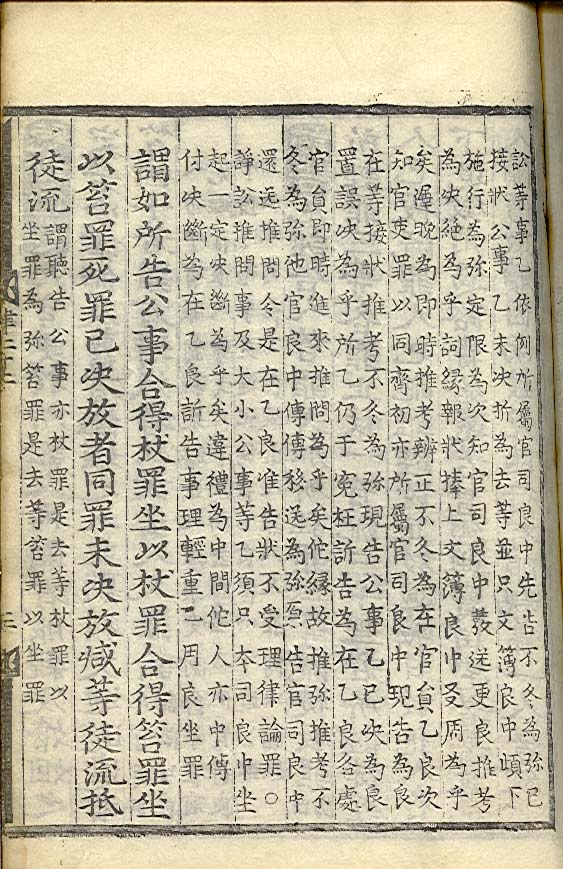 訟等事乙依例所屬官司良中先告不冬為弥已
接狀公事乙未决折為去等並只文簿良中頉下
施行為弥定限為次知官司良中發送更良推考
為决絶為乎詞縁報狀捧上文簿良中叉周為乎
矣遲晚為即時推考辨正不冬為在官員乙良次
知官吏罪以同齊初亦所屬官司良中現告為良
在等接狀推考不冬為弥現告公事乙已决為良
置誤决為乎所乙仍于寃枉訴告為在乙良各處
官員即時進來推問為乎矣佗縁故推弥推考不
冬為弥他官良中傳傳移送為弥原告官司良中
還送推問令是在乙良准告狀不受理律論罪○
諍訟推問事及大小公事等乙須只本司良中坐
起一定决斷為乎矣違禮為中間佗人亦中傳
付决斷為在乙良訴告事理輕重乙用良坐罪
謂如所告公事合得杖罪坐以杖罪合得笞罪坐
以笞罪死罪已决放者同罪未决放减等徒流抵
徒流謂聽告公事亦杖罪是去等杖罪以
坐罪為弥笞罪是去等笞罪以坐罪
律二十二
三